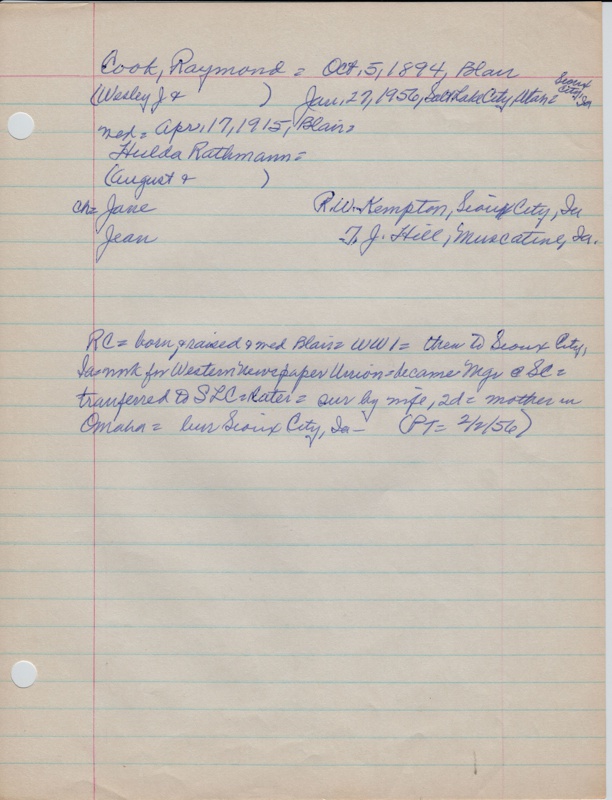 Cook, Raymond = Oct. 5, 1894, Blair
(Wesley J. & ) Jan. 27, 1956, Salt Lake City, Utah = Sioux City, Ia
med = Apr. 17, 1915, Blair =
Hulda Rathmann =
(August & )
ch = Jane R.W. Kempton, Sioux City, Ia
Jean T. J. Hill, Muscatine, Ia.
RC = born, raised & med Blair = WW1 = then to Sioux City,
Ia = work for Western Newspaper Union = became Mgr @ SC =
tranferred to SLC = later = sur by wife, 2d = mother in
Omaha = bur Sioux City, Ia — (PT = 2/2/56)